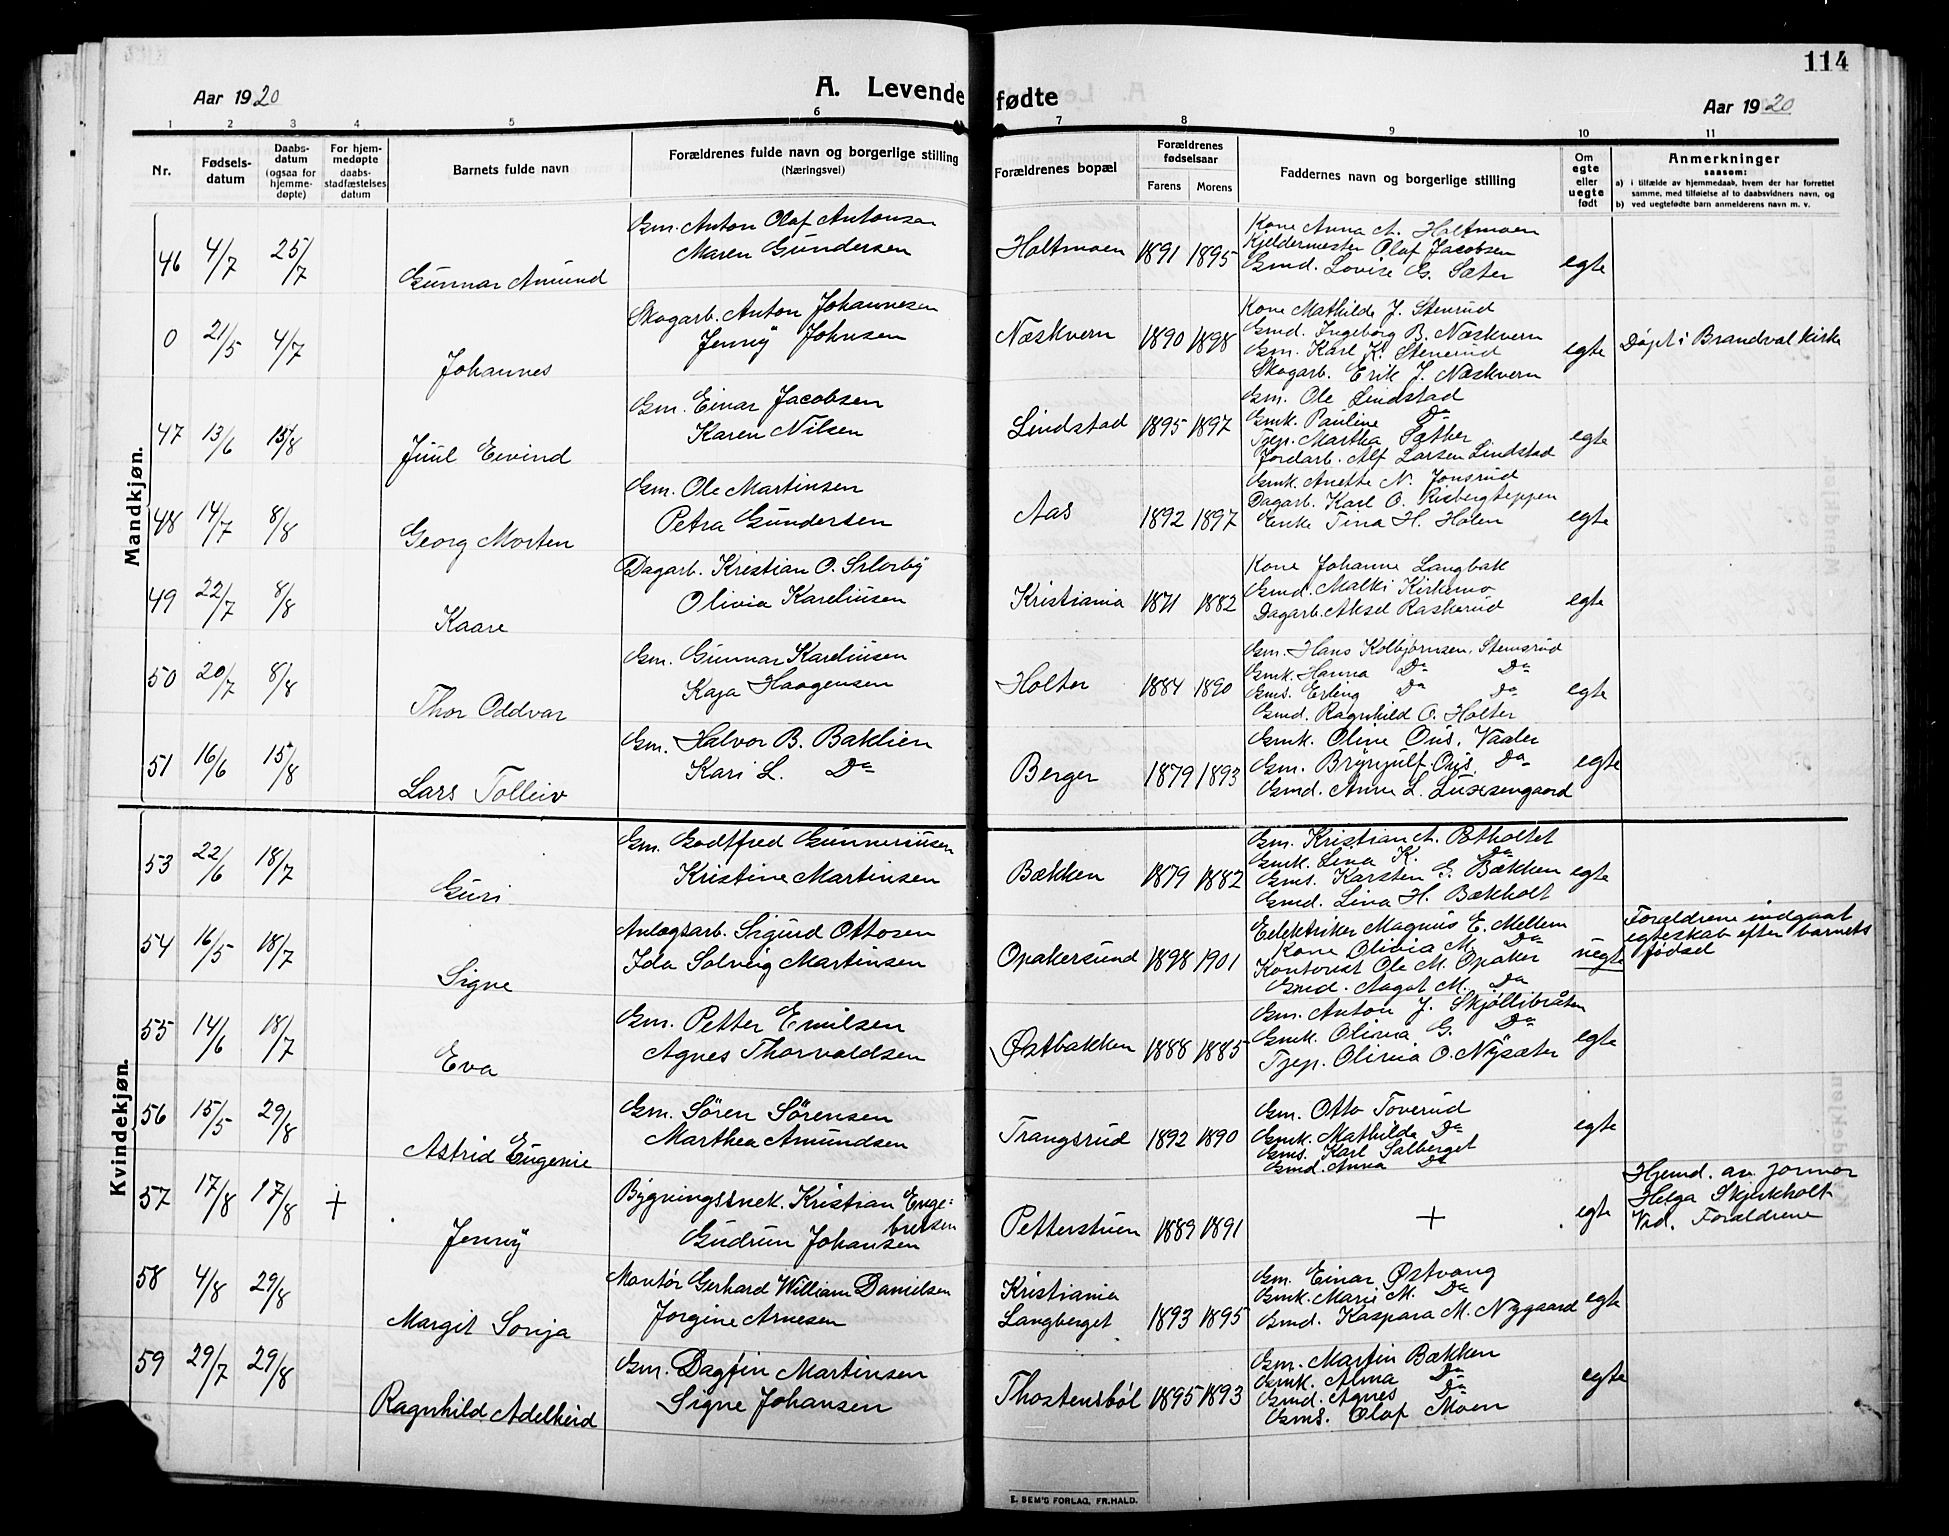 114
Aar 1920
A. Levende fødte
Aar 1920
1 2 3 4 5 6 7 8 9 10 11
Nr.
Fødsels-
datum
Daabs-
datum
(ogsaa for
hjemme-
døpte)
For hjem-
medøpte
daabs-
stadfæstelses
datum
Barnets fulde navn
Forældrenes fulde navn og borgerlige stilling
(Næringsvei)
Forældrenes bopæl
Forældrenes
fødselsaar
Farens Morens
Faddernes navn og borgerlige stilling
Om
egte
eller
uegte
født
Anmerkninger
saasom:
a) i tilfælde av hjemmedaab, hvem der har forrettet
samme, med tilføielse af to daabsvidners navn, og
b) ved uegtefødte barn anmelderens navn m. v.
Mandkjøn.
46 4/7 25/7 Gunnar Amund
Gm. Anton Olaf Antonsen
Maren Gundersen
Holtmoen 1891 1895
Kone Anna A. Holtmoen
Kjeldermester Olaf Jacobsen
Gmd. Lovise G. Sæter
egte
0 21/5 4/7 Johannes
Skogarb. Anton Johannesen
Jenny Johnsen
Næskvern 1890 1898
Kone Mathilde J. Stenrud
Gmd. Ingeborg B. Næskvern
Gm. Karl K. Stenerud
Skogarb. Erik J. Næskvern
egte
Døpt i Brandval kirke
47 13/6 15/8 Juul Eivind
Gm. Einar Jacobsen
Karen Nilsen
Lindstad 1895 1897
Gm. Ole Lindstad
Gmk. Pauline Do
Tjep. Martha Sæther
Jordarb. Alf Larsen Lindstad
egte
48 14/7 8/8 Georg Morten
Gm. Ole Martinsen
Petra Gundersen
Aas 1892 1897
Gmk. Anette N. Jonsrud
Dagarb. Karl O. Risbergteppen
Enke Tina H. Holen
egte
49 22/7 8/8 Kaare
Dagarb. Kristian O.
Olivia Kareliusen
Kristiania 1871 1882
Kone Johanne Langbak
Gmd. Malki Kirkemo
Dagarb. Aksel Raskerud
egte
50 20/7 8/8 Thor Oddvar
Gm. Gunnar Kareliusen
Kaja Haagensen
Holter 1884 1890
Gm. Hans Kolbjørnsen, Stemsrud
Gmk. Hanna Do Do
Gms. Erling Do do
Gmd. Ragnhild O. Holter
egte
51 16/6 15/8 Lars Tolleiv
Gm. Halvor B. Baklien
Kari L. Do
Berger 1879 1893
Gmk. Oline Ous, Vaaler
Gm. Brynjulf Ous, Do
Gmd. Anne L. Luxsengaard
egte
Kvindekjøn.
53 22/6 18/7 Guri
Gm. Godtfred Gunneriusen
Kristine Martinsen
Bækken 1879 1882
Gm. Kristian A. Botholtet
Gmk. Lina K. Do
Gms. Karsten G. Bækken
Gmd. Lina H. Bækholt
egte
54 16/5 18/7 Signe
Anlægsarb. Sigurd Ottosen
Ida Solveig Martinsen
Opakersund 1898 1901
Eelektriker Magnus E. Mellem
Kone Olivia M. Do
Kontorist Ole M. Opaker
Gmd. Aagot M. Do
uegte
Forældrene indgaat
egteskab efter barnets
fødsel
55 14/6 18/7 Eva
Gm. Petter Emilsen
Agnes Thorvaldsen
Østbakken 1888 1885
Gm. Anton J. Skjøllibråten
Gmk. Olivia G. Do
Tjep. Olivia O. Nysæter
egte
56 15/5 29/8 Astrid Eugenie
Gm. Søren Sørensen
Marthea Amundsen
Trangsrud 1892 1890
Gm. Otto Toverud
Gmk. Mathilde Do
Gms. Karl Salberget
Gmd. Anna Do
egte
57 17/8 17/8 + Jenny
Bygningssnek. Kristian Enge-
bretsen
Gudrun Johansen
Petterstuen 1889 1891
+
egte
Hjemd. av jormor
Helga Skjerkholt
Vid. Forældrene
58 4/8 29/8 Margit Sonja
Montør Gerhard William Danielsen
Jorgine Arnesen
Kristiania
Langberget 1893 1895
Gm. Einar Østvang
Gmk. Marie M. Do
Gmd. Kaspara M. Nygaard
egte
59 29/7 29/8 Ragnhild Adelheid
Gm. Dagfin Martinsen
Signe Johansen
Thostensbøl 1895 1893
Gm. Martin Bækken
Gmk. Alma Do
Gmd. Agnes Do
Gms. Olaf Moen
egte
E. SEM'S FORLAG, FR.HALD.